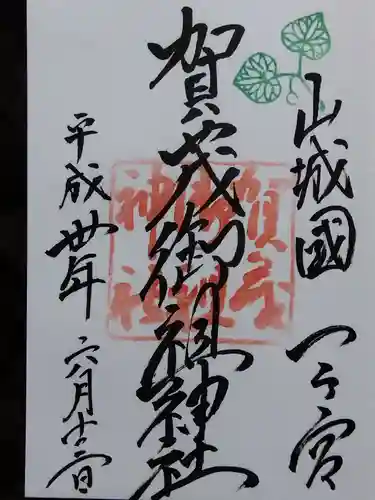 山城國一ケ宮
賀茂御祖神社
平成卅年六月十二日